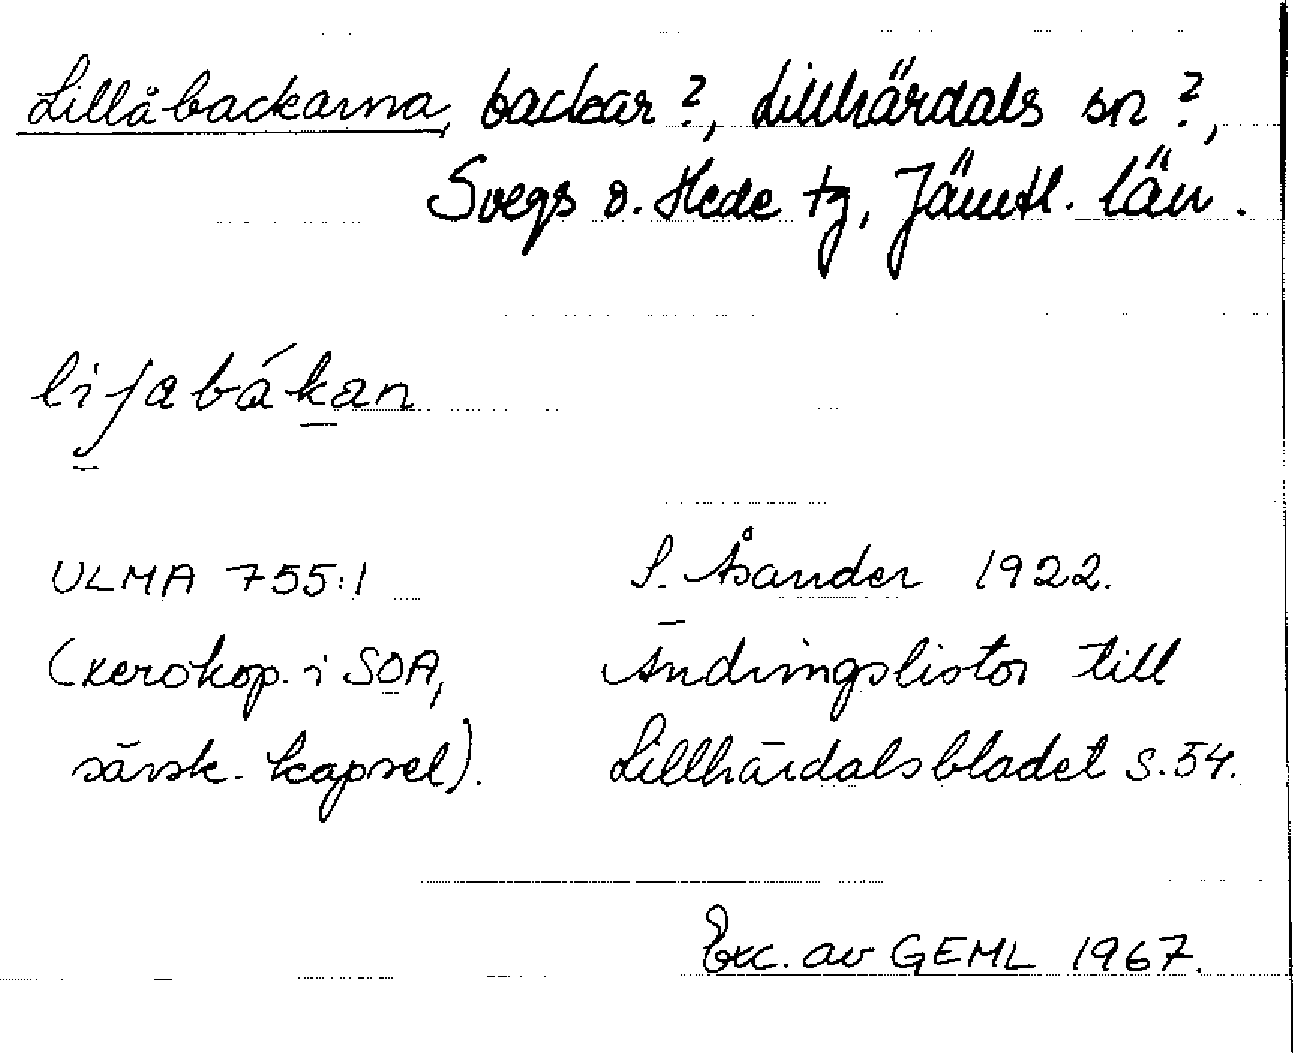 Lillåbackarna, backar?, Lillhärdals sn?,
Svegs o. Hede tg, Jämtl. län.
lijabákan
ULMA 755:1
S. Åsander 1922.
(xerokop. i SOA,
Ändringslistor till
särsk. kapsel).
Lillhärdalsbladet s.54.
Exc. av GEML 1967.